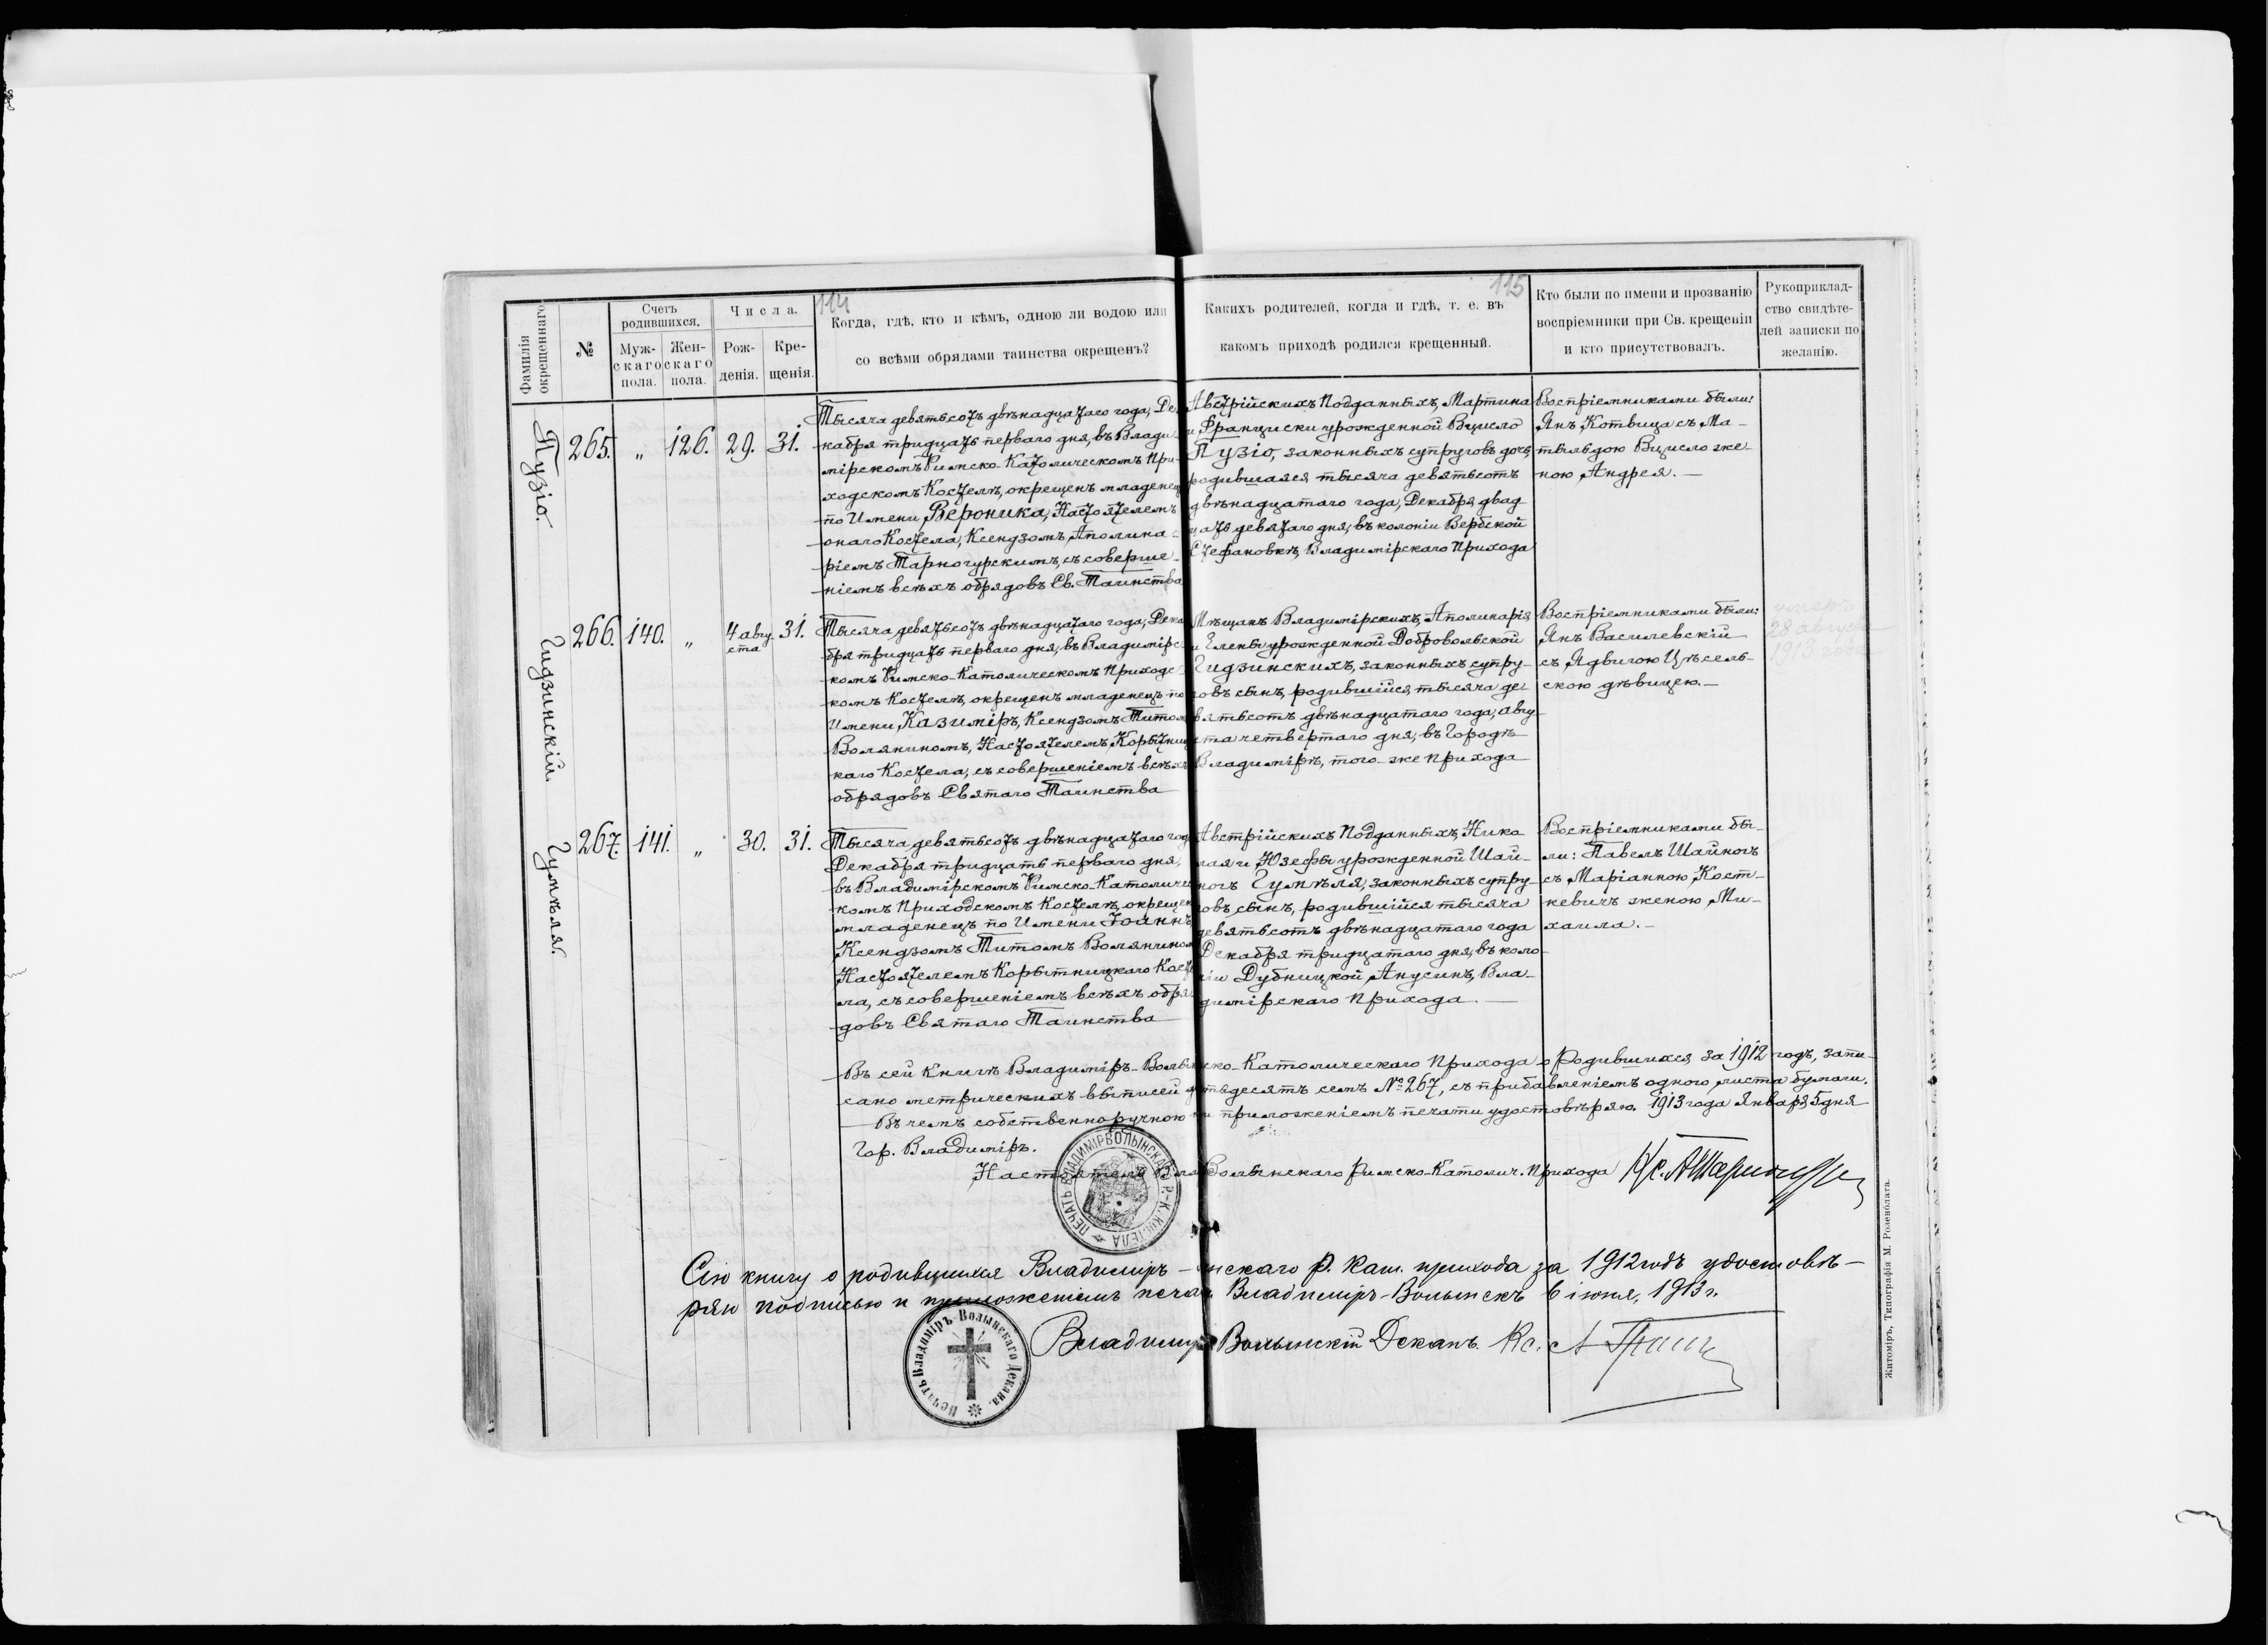 114
115
Фамилія окрещеннаго
№
Счетъ родившихся.
Мужскаго пола.
Женскаго пола.
Числа.
Рожденія.
Крещенія.
Когда, гдѣ, кто и кѣмъ, одною ли водою или
со всѣми обрядами таинства окрещенъ?
Какихъ родителей, когда и гдѣ, т. е. въ
какомъ приходѣ родился крещенный.
Кто были по имени и прозванію
воспріемники при Св. крещеніи
и кто присутствовалъ.
Рукоприклад-
ство свидѣте-
лей записки по
желанію.
Пузіо.
265. „ 126. 29. 31.
Тысяча девятьсотъ двѣнадцатаго года, Де-
кабря тридцать перваго дня, въ Влади-
мірскомъ Римско-Католическомъ При-
ходскомъ Костелѣ, окрещенъ младенец
по Имени Вероника, Настоятелемъ
онаго Костела, Ксендзомъ Аполина-
ріемъ Тарногурскимъ, съ соверше-
ніемъ всѣхъ обрядовъ Св. Таинства
Австрійскихъ Подданныхъ, Мартина
и Франциски урожденной Вцисло
Пузіо, законныхъ супруговъ дочь,
родившаяся тысяча девятьсотъ
двѣнадцатаго года, Декабря двад
цать девятаго дня, въ колоніи Вербской
Стефановкѣ, Владимірскаго Прихода
Воспріемниками были:
Янъ Котвица съ Ма-
тыльдою Вцисло же-
ною Андрея.
Гидзинскій.
266. 140. „ 4 авгу ста 31.
Тысяча девятьсотъ двѣнадцатаго года, Дека
бря тридцать перваго дня, въ Владимірс-
комъ Римско-Католическомъ Приходс-
комъ Костелѣ, окрещенъ младенецъ по
Имени Казиміръ, Ксендзомъ Титом
Воляниномъ, Настоятелемъ Корытниц
каго Костела, съ совершеніемъ всѣхъ
обрядовъ Святаго Таинства
Мѣщанъ Владимірскихъ, Аполинарія
и Елены урожденной Добровольской
Гидзинскихъ, законныхъ супру-
говъ сынъ, родившійся тысяча де-
вятьсотъ двѣнадцатаго года, авгу-
ста четвертаго дня, въ Городѣ
Владимірѣ, того-же прихода
Воспріемниками были:
Янъ Василевскій
съ Ядвигою Цѣсель-
скою дѣвицею.
умеръ
28 августа
1913 года
Гумѣля.
267. 141. „ 30. 31.
Тысяча девятьсотъ двѣнадцатаго год
Декабря тридцать перваго дня,
въ Владимірскомъ Римско-Католичес
комъ Приходскомъ Костелѣ, окрещен
младенецъ по Имени Іоаннъ
Ксендзомъ Титомъ Волянином
Настоятелемъ Корытницкаго Косте
ла, съ совершеніемъ всѣхъ обря
довъ Святаго Таинства
Австрійскихъ Подданныхъ, Нико
лая и Юзефы урожденной Шай-
ногъ Гумѣля, законныхъ супру-
говъ сынъ, родившійся тысяча
девятьсотъ двѣнадцатаго года
Декабря тридцатаго дня, въ коло
ніи Дубницкой Анусинъ, Вла-
димірскаго прихода.
Воспріемниками бы-
ли: Павелъ Шайногъ
съ Маріанною Кост-
кевичъ женою Ми-
хаила.
Въ сей Книгѣ Владиміръ-Волын ско-Католическаго Прихода о Родившихся за 1912 годъ, запи-
сано метрическихъ выписей тьдесятъ семь № 267, съ прибавленіемъ одного листа бумаги.
Въ чемъ собственноручною и приложеніемъ печати удостовѣряю. 1913 года Января 5 дня
Гор. Владиміръ.
Настоятель Вла Волынскаго Римско-Католич. Прихода Кс. А Тарногурск
ПЕЧАТЬ ВЛАДИМІРВОЛЫНСКА Р.-К. КОСТЕЛА
Сію книгу о родившихся Владиміръ- нскаго р. кат. прихода за 1912 годъ удостовѣ-
ряю подписью и приложеніемъ печа Владиміръ-Волынскъ 6 іюня, 1913 г.
Владимір Волынскій Деканъ Кс. А
Печать Владиміръ-Волынскаго Декана.
Житоміръ, Типографія М. Розенблата.